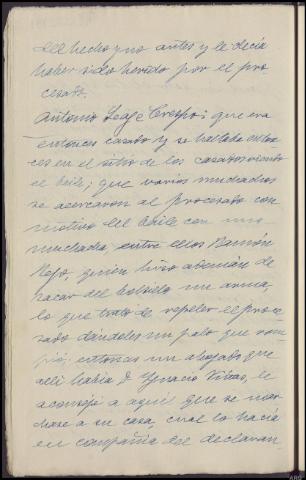 del hecho y no antes y le decia
haber sido herido por el pro
cesado.
Antonio Leage Crespo: que era
entonces casado y se hallaba enton
ces en el sitio de los casados viendo
el baile; que varios muchachos
se acercaron al procesado con
motivo del baile con una
muchacha, entre ellos Ramón
Rejo, quien hizo ademán de
sacar del bolsillo un arma,
lo que trató de repeler el proce
sado dándoles un palo que rom
pió; entonces un abogado que
allí había D Ygnacio Vibas, le
aconsejó a aquel que se mar
chase a su casa, cual lo hacía
en compañía del declaran